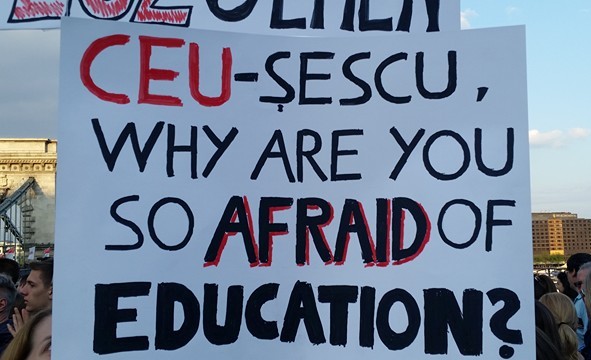 CEU-ȘESCU,
WHY ARE YOU
SO AFRAID OF
EDUCATION?